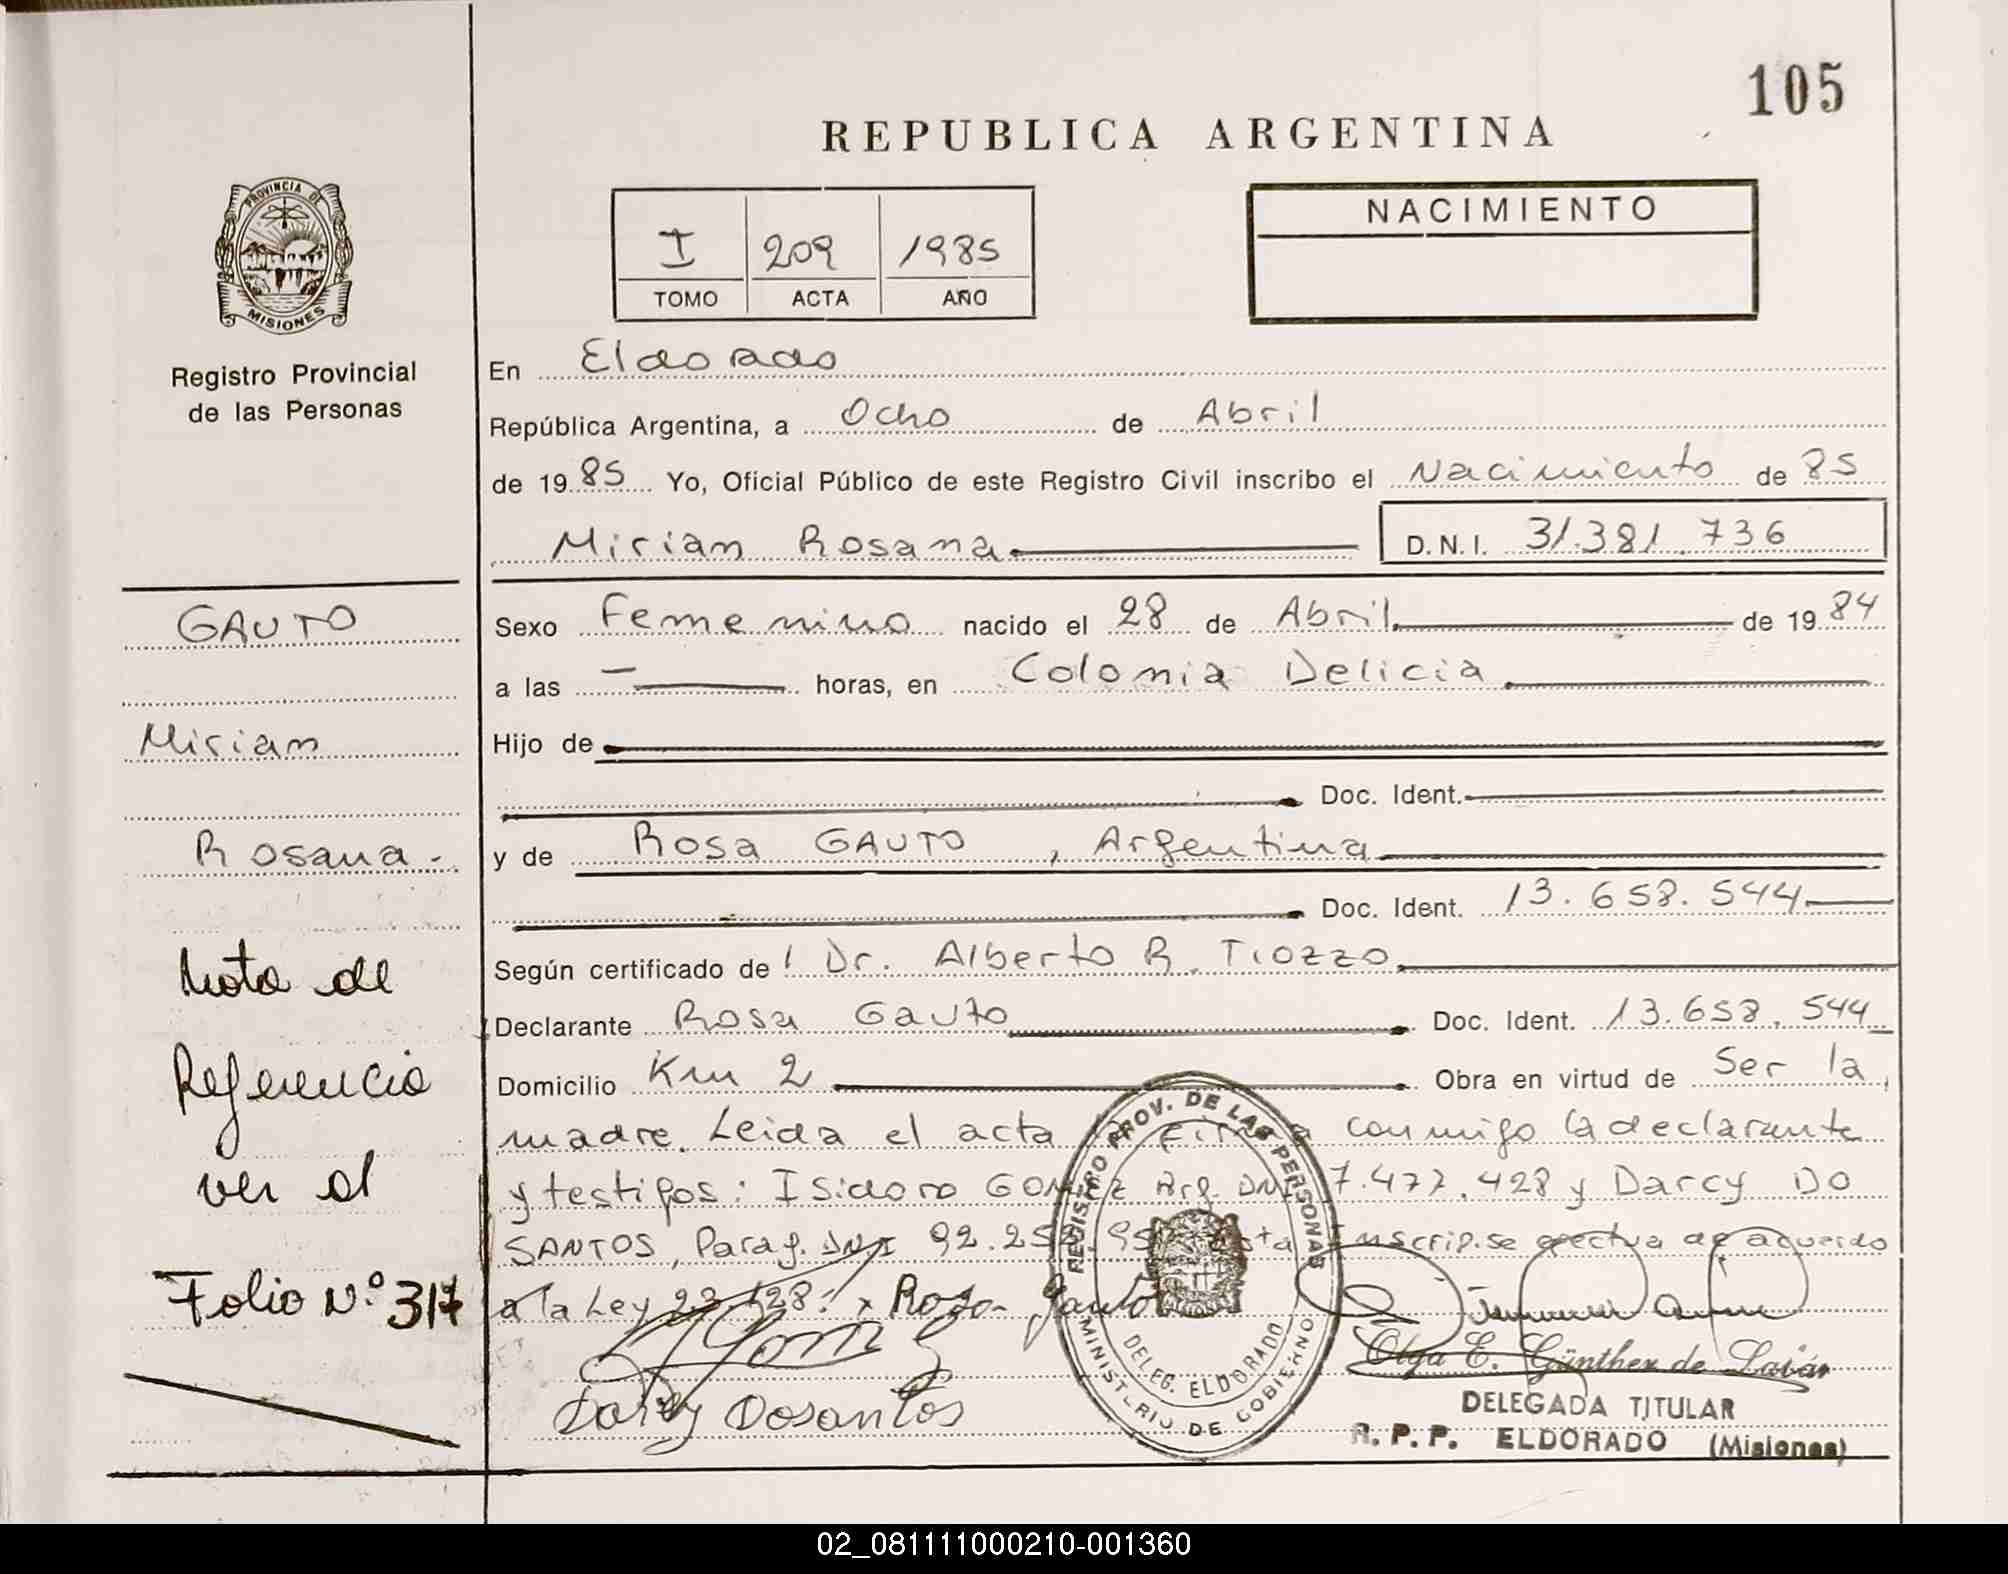 105
REPUBLICA ARGENTINA
PROVINCIA DE
MISIONES
Registro Provincial
de las Personas
I 209 1985
TOMO ACTA AÑO
NACIMIENTO
En Eldorado
República Argentina, a Ocho de Abril
de 1985 Yo, Oficial Público de este Registro Civil inscribo el Nacimiento de 85
Mirian Rosana D.N.I. 31.381.736
GAUTO
Mirian
Rosana.
Nota de
Referencia
ver al
Folio Nº 317
Sexo Femenino nacido el 28 de Abril de 1984
a las — horas, en Colonia Delicia
Hijo de
Doc. Ident.
y de Rosa GAUTO, Argentina
Doc. Ident. 13.658.544
Según certificado de Dr. Alberto R. Tiozzo
Declarante Rosa Gauto Doc. Ident. 13.658.544
Domicilio Km 2 Obra en virtud de Ser la
madre. Leida el acta conmigo la declarante
y testigos: Isidoro GOMEZ Arg. DNI 7.477.428 y Darcy DO
SANTOS, Parag. DNI 92.25 Inscrip.se efectua de acuerdo
a la Ley 23.128: x Rosa Gauto
Gomez
Darcy Dosantos
REGISTRO PROV. DE LAS PERSONAS
DELEG. ELDORADO
MINISTERIO DE GOBIERNO
Olga E. Günther de Laván
DELEGADA TITULAR
R. P. P. ELDORADO (Misiones)
02_081111000210-001360